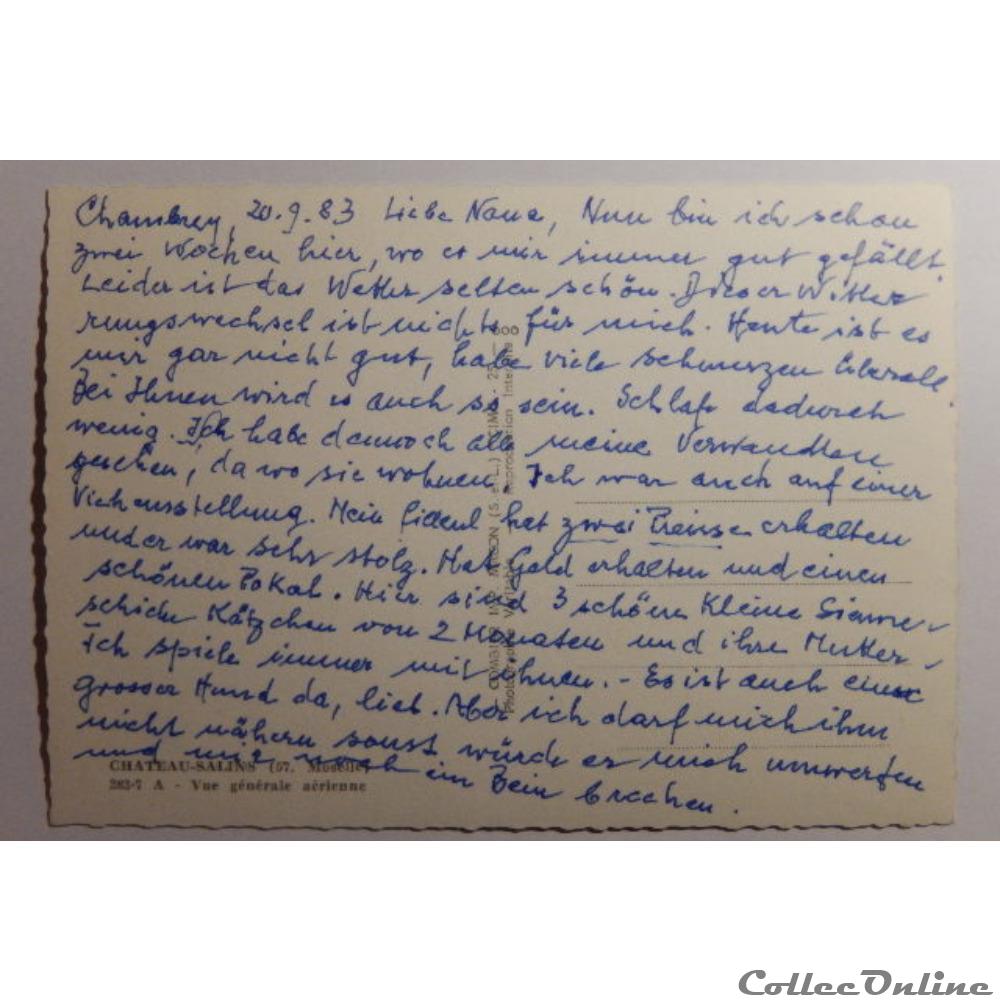 Chambrey, 20.9.83 Liebe Nana, Nun bin ich schon
zwei Wochen hier, wo es mir immer gut gefällt.
Leider ist das Wetter selten schön. Dieser Witte-
rungswechsel ist nichts für mich. Heute ist es
mir gar nicht gut, habe viele schmerzen überall.
Bei Ihnen wird es auch so sein. Schlafe dadurch
wenig. Ich habe dennoch alle meine Verwandten
gesehen, da wo sie wohnen. Ich war auch auf einer
Viehausstellung. Mein filleul hat zwei Preise erhalten
und er war sehr stolz. Hat Geld erhalten und einen
schönen Pokal. Hier sind 3 schöne kleine Siame-
sische Kätzchen von 2 Monaten und ihre Mutter.
Ich spiele immer mit ihnen. - Es ist auch ein
grosser Hund da, lieb. Aber ich darf mich ihm
nicht nähern sonst würde er mich umwerfen
und mir noch ein Bein brechen.
CHATEAU-SALINS (57. Moselle)
283-7 A - Vue générale aérienne
COMBIER IMP. MACON (S.-et-L.) "CIM"
Reproduction Interdite
CollecOnline